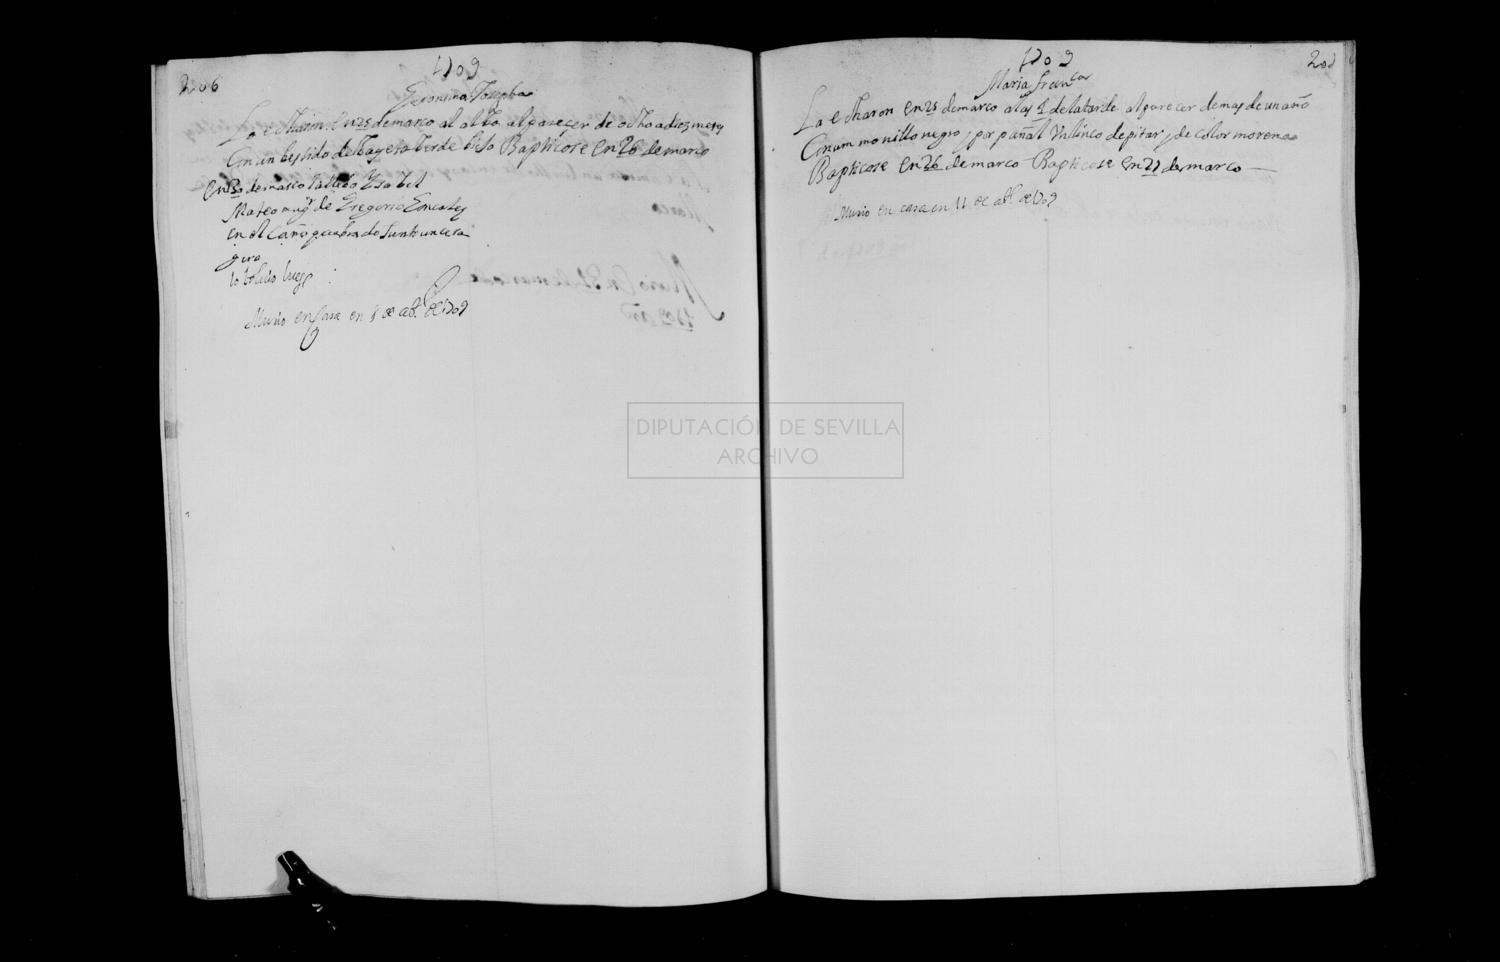 206
1709
Geronima Josepha
La echaron en 25 de marco al alba al parecer de ocho a dies meses
Con un bestido de bayeta berde biejo Bapticose en 26 de marco
en 30 de marco la llebo Ysabel
Mateo muger de Gregorio Goncales
en el Caño quebrado junto un cera
gero
lo bolvio luego
Murio en Casa en 1 de abl. de 1709
1709
Maria Franca
La echaron en 25 de marco a las 9 de la tarde al parecer de mas de un año
Con un monillo negro y por pañal blanco de color moreno
Bapticose en 26 de marco Bapticose en 27 de marco
Murio en casa en 11 de abl. de 1709
DIPUTACIÓN DE SEVILLA
ARCHIVO